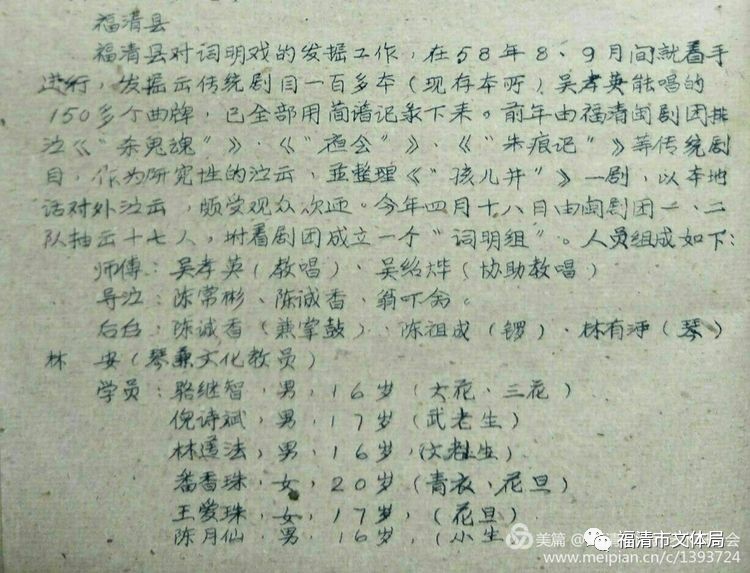 福清县
福清县对词明戏的发掘工作，在58年8、9月间就着手
进行，发掘出传统剧目一百多本（现存本所）吴孝英能唱的
150多个曲牌，已全部用简谱记录下来。前年由福清闽剧团排
泣《“杀鬼魂”》、《“夜会”》、《“朱痕记”》等传统剧
目，作为研究性的泣出，并整理《“孩儿井”》一剧，以本地
话对外泣出，颇受观众欢迎。今年四月十八日由闽剧团一、二
队抽出十七人，附着剧团成立一个“词明组”。人员组成如下：
师傅：吴孝英（教唱）、吴绍烨（协助教唱）
导泣：陈常彬、陈诚香、翁吓舍。
后台：陈诚香（兼掌鼓）、陈祖成（锣）、林有（琴）
林 安（琴兼文化教员）
学员：骆继智，男，16岁（大花、三花）
倪诗斌，男，17岁（武老生）
林道法，男，16岁（文老生）
番香珠，女，20岁（青衣、花旦）
王爱珠，女，17岁，（花旦）
陈月仙，男，16岁，（小生
美篇 @ 福清市文体局会
www.meipian.cn/c/1393724